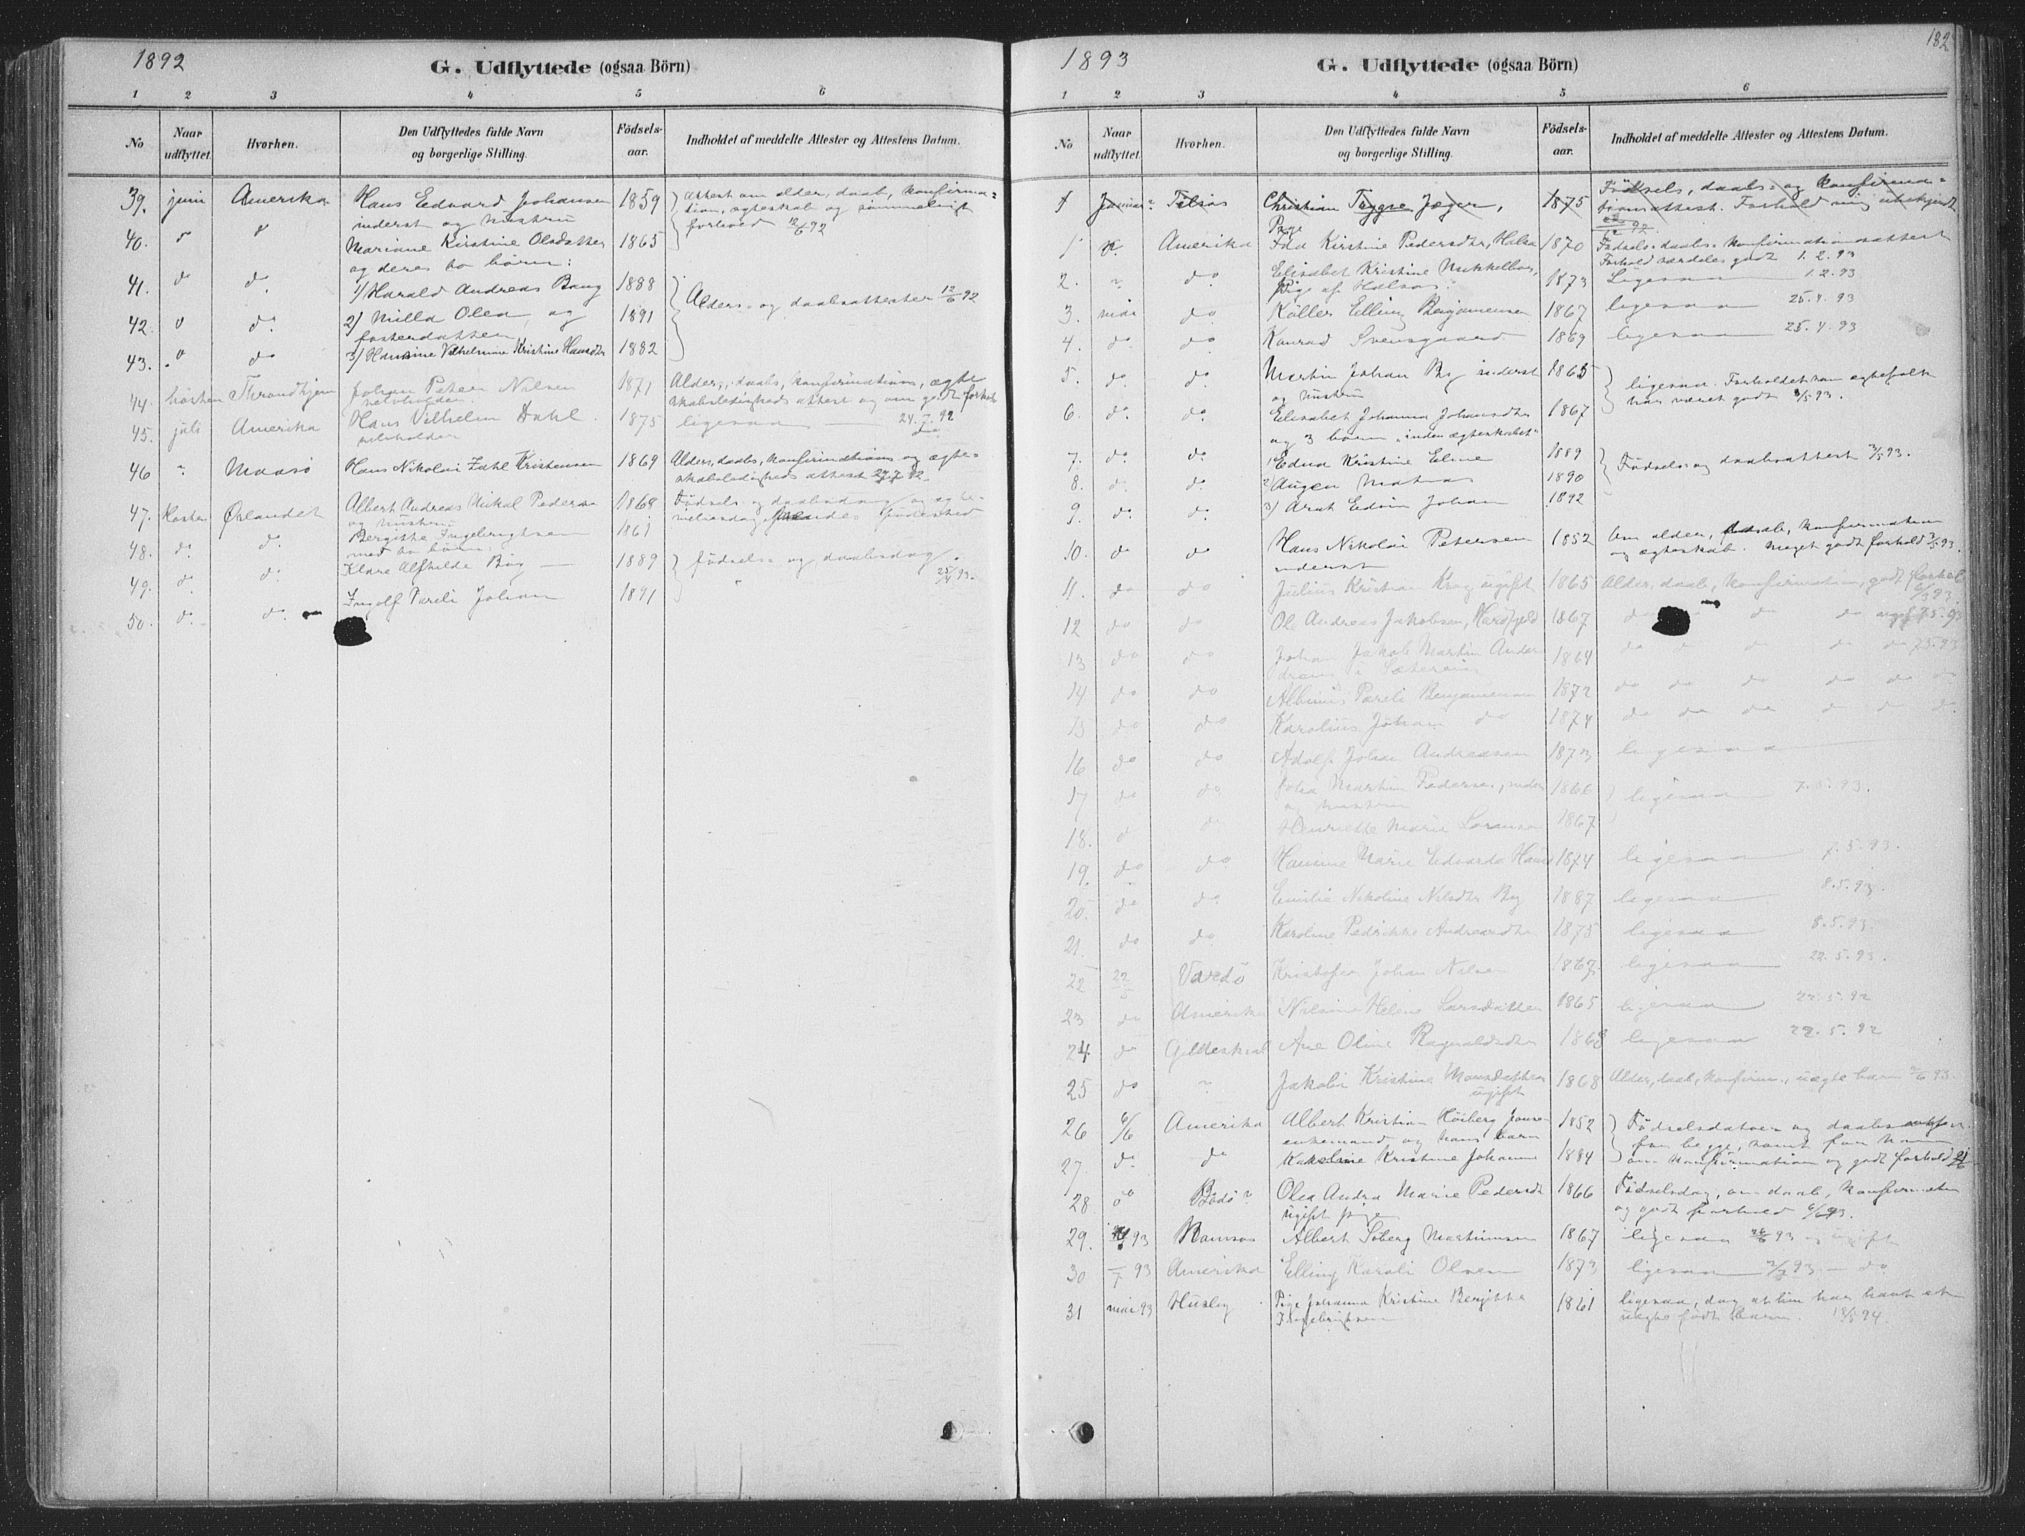 1892
G. Udflyttede (ogsaa Börn)
1 2 3 4 5 6
No Naar udflyttet. Hvorhen. Den Udflyttedes fulde Navn og borgerlige Stilling. Födsels-aar. Indholdet af meddelte Attester og Attestens Datum.
39. juni Amerika Hans Edvard Johansen 1859 Attest om alder, daab, konfirma-
inderst og hustru tion, ægteskab og
40. d d Mariane Kirstine Olsdatter 1865 forhold 12/6 92
og deres to börn:
41. d d 1) Harald Andreas Bang 1888 Alders- og daabsattester 12/6 92
42. d d 2) Milla Olea, og 1891
fosterdatteren
43. " do 3) Hansine Vilhelmine Kristine Hansdtr 1882
44. hösten Throndhjem Johan Peter Nilsen 1871 Alders, daabs, konfirmations, ægte
skabsledigheds attest og om godt forhold
45. juli Amerika Hans Vilhelm Dahl. 1875 ligesaa 24.7.92
selvholder
46 " Maasö Hans Nikolai Zahl Kristensen 1869 Alders, daabs, konfirmations og ægte-
skabsledigheds attest 27.7.92.
47. Hösten Örlandet Albert Andreas Mikal Pedersen 1868 Födsels og daabsdag og ægte-
og hustru
48. do do Bergithe Ingebrigtsen 1861
med to börn:
49. do do Klara Alfhilde Bög 1889 födsels og daabsdag. 25/4 93.
50. do do Ingolf Pareli Johan 1891 "
182
1893
G. Udflyttede (ogsaa Börn)
1 2 3 4 5 6
No Naar udflyttet. Hvorhen. Den Udflyttedes fulde Navn og borgerlige Stilling. Födsels-aar. Indholdet af meddelte Attester og Attestens Datum.
1 Januar Christian Trygve Jæger, 1875 Födsels, daabs- og konfirma-
Pige tionsattest. Forhold mig ubekjendt
1 Amerika Kirstine Pedersdtr, Halsa 1870 Födsels- daabs- konfirmationsattest
Forhold særdeles godt 1.2.93
2. " do Elisabet Kristine Mikkelbor, 1873 Ligesaa 1.2.93
pige af Halsos
3. mai do Köller Elling Benjaminsen 1867 ligesaa 25.4.93
4. do do Konrad Svensgaard 1869 ligesaa 25.4.93
5. do do Martin Johan Bög inderst 1865 ligesaa. Forholdet som ægtefolk
og hustru har været godt 3/5 93.
6. do do Elisabet Johanna Johansdtr 1867
og 3 börn "inden ægteskabet"
7. do do 1) Edna Kristine Eline 1889 Födsels og daabsattest 3/5 93.
8. do do 2) Augen Matias 1890
9. do do 3) Arnt Edvin Johan 1892
10. do do Hans Nikolai Petersen 1852 Om alder, daab, konfirmation
inderst og ægteskab. Meget godt forhold 3/5 93.
11. do do Julius Kristian Krog ugift 1865 Alder, daab, konfirmation, godt forhold
12 do do Ole Andreas Jakobsen, Hardfjeld 1867 do do do do ugift 7.5.93
13 do do Johan Jakob Martin Andre 1864 do do do do do 7.5.93
14 do do Albinus Pareli Benjaminsen 1872 do do do do do do
15 do do Karolius Johan do 1874 do do do do do do
16 do do Adolf Johan Andreasen 1873 ligesaa
17 do do Johan Martin Pedersen, inderst 1866 ligesaa 7.5.93.
og hustru
18. d do Henriette Marie Sörensen 1867
19. do do Hansine Marie Edvarda Hans 1874 ligesaa 7.5.93.
20. do do Emilie Nikoline Nilsdtr Bög 1887 ligesaa 8.5.93.
21. do do Karoline Pedrikke Andreasdtr 1875 ligesaa 8.5.93.
22 22/5 Vardö Kristofer Johan Nilsen 1867 ligesaa 22.5.93.
23 do Amerika Nilsine Helene Larsdatter 1865 ligesaa 22.5.92
24 do Gildeskaal Ane Oline Ragnvaldsdtr 1868 ligesaa 22.5.92
25 do " Jakobi Kristine Monsdatter 1868 Alder, daab, konfirm., uægte barn 2/6 93.
ugift
26 6/6 Amerika Albert Kristian Höiberg Jonsen 1852 Födselsdatoer og daabsattester
enkemand og hans barn for begge, samt for ham
27. do do Karoline Kristine Johanne 1884 om konfirmation og godt forhold
28 do Bodö? Olea Andra Marie Pedersdt 1866 Födselsdag, om daab, konfirmation
ugift pige og godt forhold 6/6 93.
29. 93 Namsos Albert Söberg Martinusen 1867 ligesaa 26/6 93 og ugift
30 /7 93 Amerika Elling Karoli Olsen 1873 ligesaa 2/7 93 — do
31 mai 93 Husby Pige Johanna Kristine Bergitte 1861 ligesaa, dog at hun har havt et
Ingebrigtsen uægte födt barn. 13/5 94.